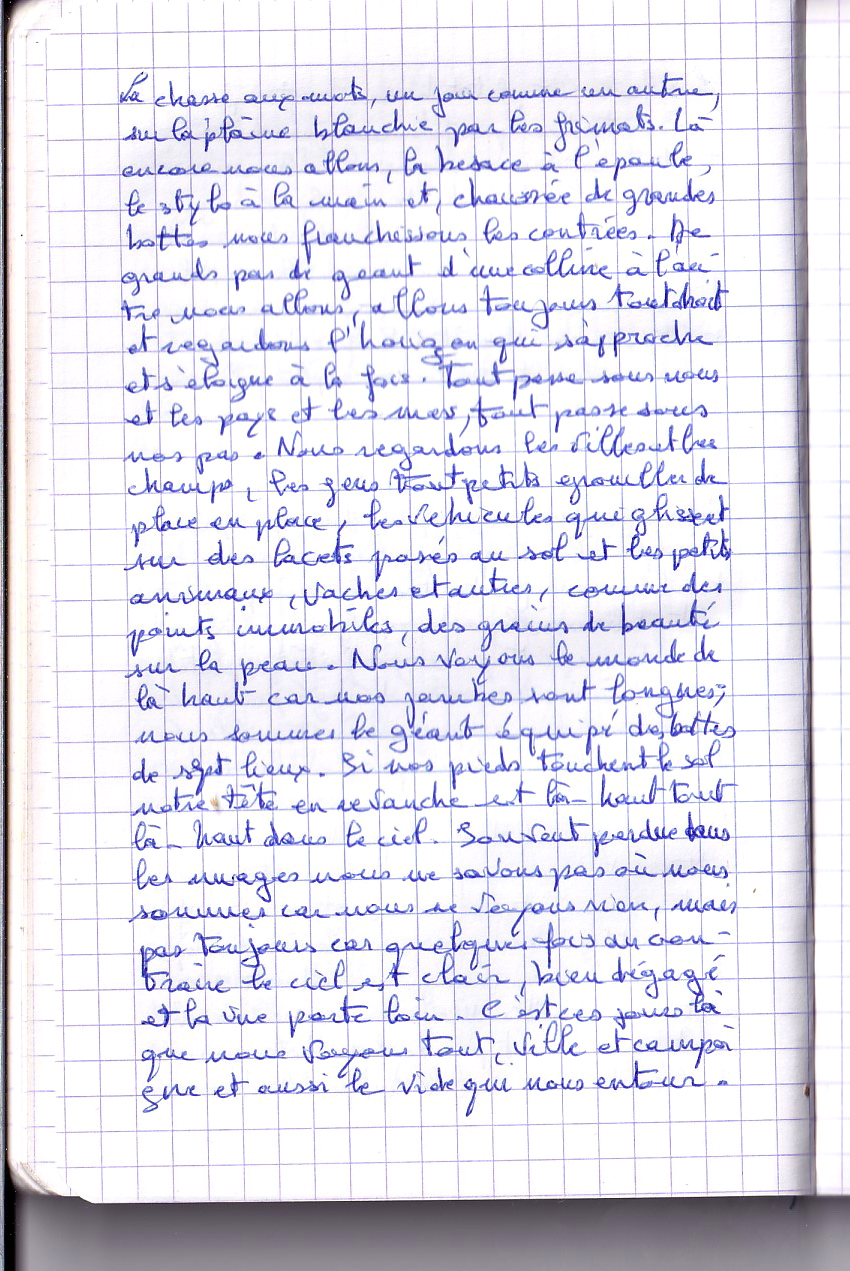 La chasse aux mots, un jour comme un autre,
sur la plaine blanchie par les frimats. Là
encore nous allons, la besace à l'épaule,
le stylo à la main et, chaussée de grandes
bottes nous franchissons les contrées. De
grands pas de géant d'une colline à l'au-
tre nous allons, allons toujours tout droit
et regardons l'horizon qui s'approche
et s'éloigne à la fois. Tout passe sous nous
et les pays et les mers, tout passe sous
nos pas. Nous regardons les villes et les
champs, les gens tout petits grouiller de
place en place, les véhicules qui glissent
sur des lacets posés au sol et les petits
animaux, vaches et autres, comme des
points immobiles, des grains de beauté
sur la peau. Nous voyons le monde de
là haut car nos jambes sont longues;
nous sommes le géant équipé des bottes
de sept lieux. Si nos pieds touchent le sol
notre tête en revanche est là-haut tout
là-haut dans le ciel. Souvent perdue dans
les nuages nous ne savons pas où nous
sommes car nous ne voyons rien, mais
pas toujours car quelques fois au con-
traire le ciel est clair, bien dégagé
et la vue porte loin. C'est ces jours là
que nous voyons tout, ville et campa
gne et aussi le vide qui nous entour.